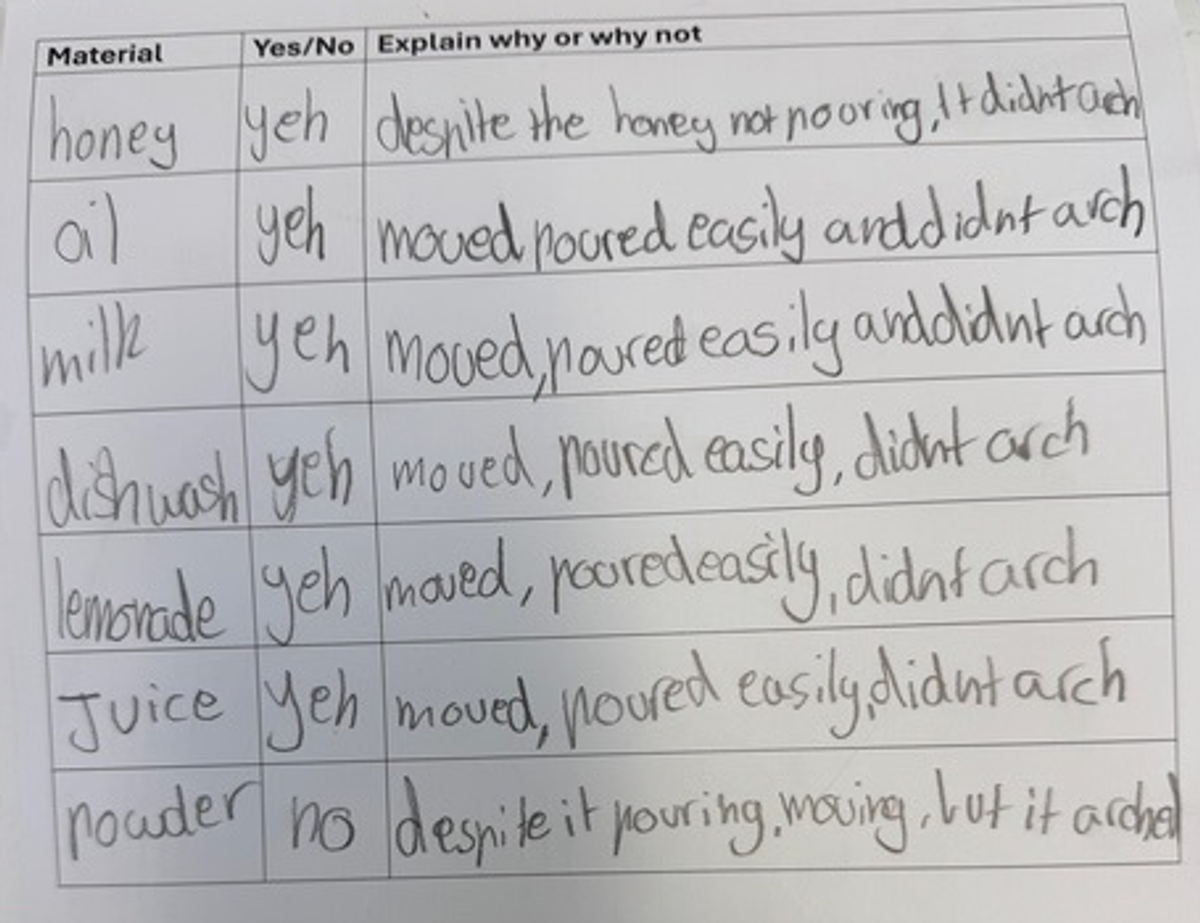 Material Yes/No Explain why or why not
honey yeh despite the honey not pooring, It didnt arch
oil yeh moved poured easily and didnt arch
milk yeh moved, poured easily and didnt arch
dishwash yeh moved, poured easily, didnt arch
lemonade yeh moved, poored easily, didnt arch
Juice yeh moved, poured easily, didnt arch
powder no despite it pouring, moving, but it arched